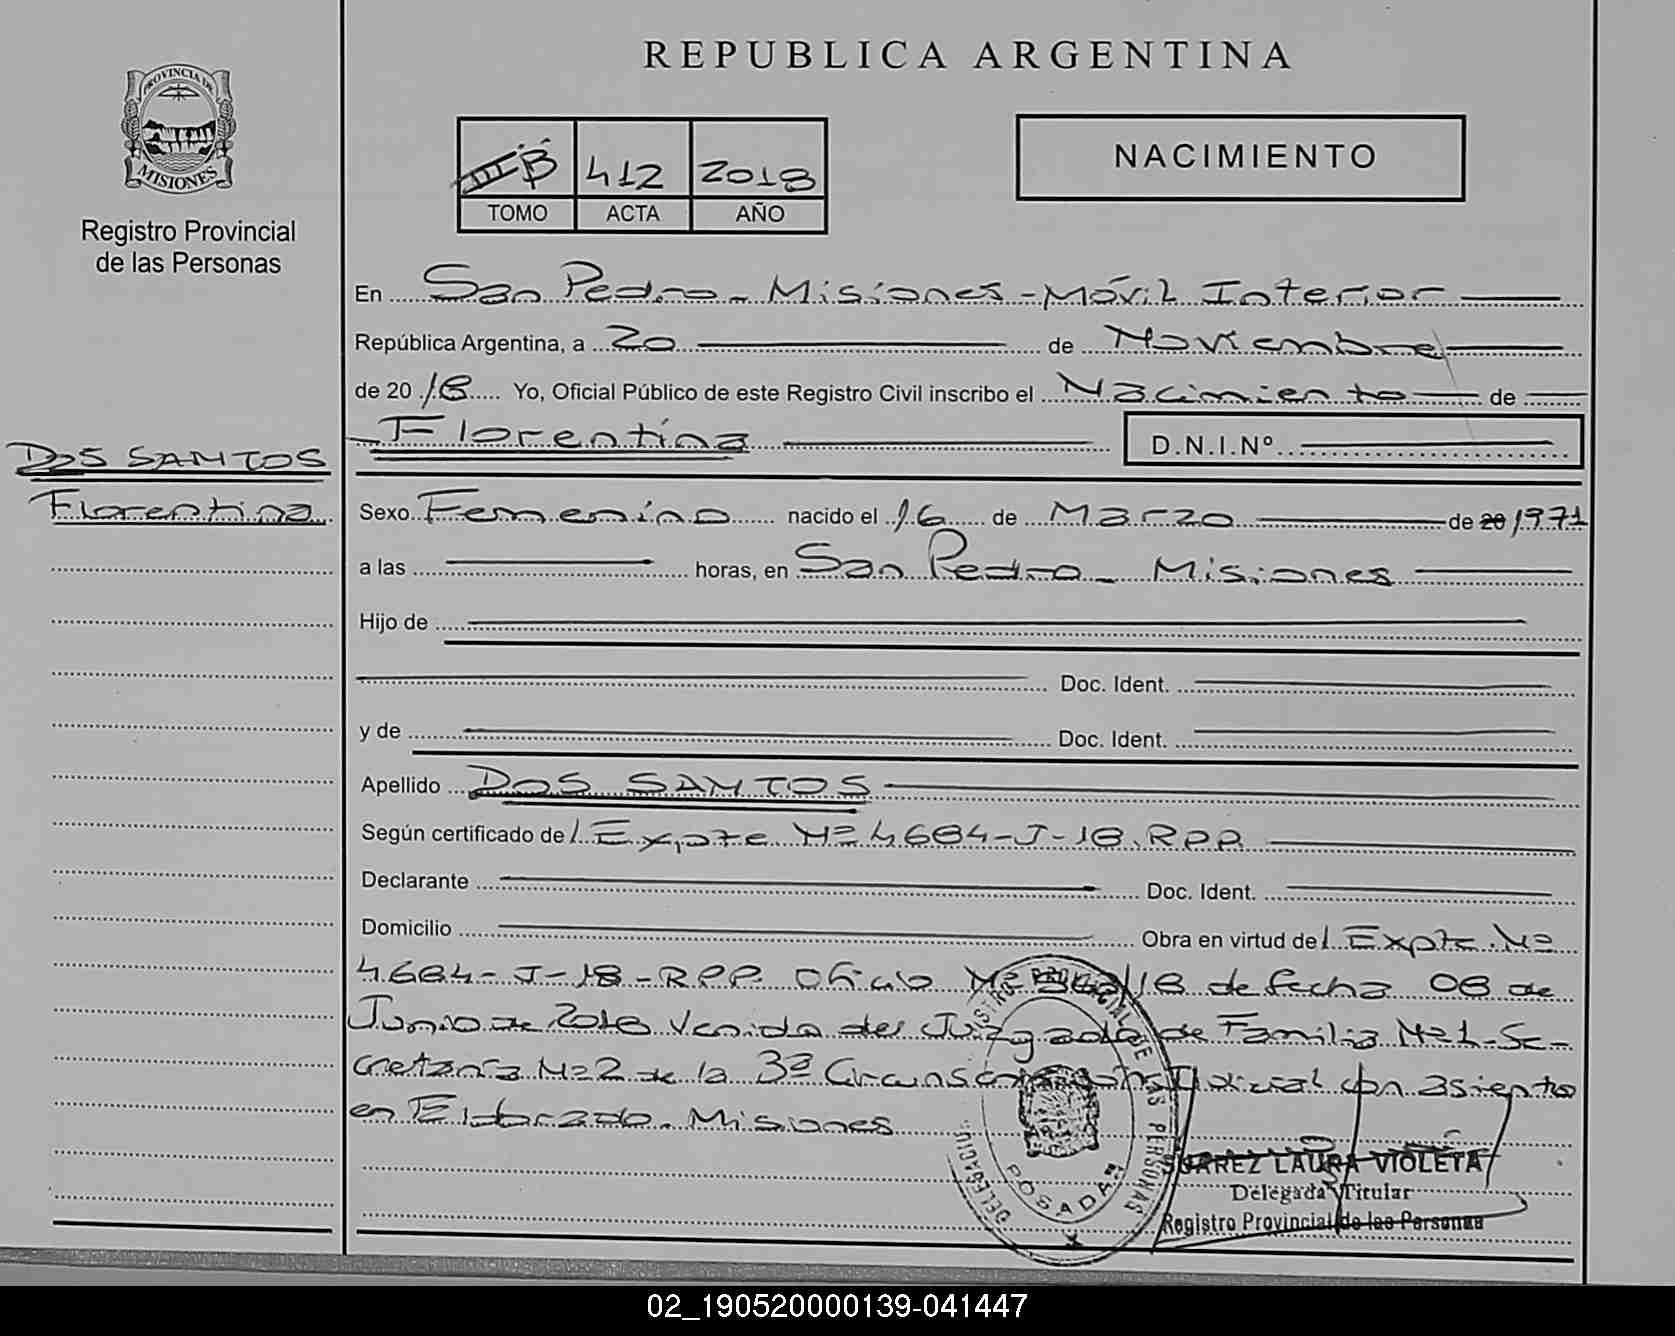 REPUBLICA ARGENTINA
PROVINCIA DE
MISIONES
Registro Provincial
de las Personas
III B 412 2018
TOMO ACTA AÑO
NACIMIENTO
En San Pedro - Misiones - Móvil Interior
República Argentina, a 20 de Noviembre
de 20 18 Yo, Oficial Público de este Registro Civil inscribo el Nacimiento de
Florentina D.N.I.Nº
DOS SANTOS
Florentina
Sexo Femenino nacido el 16 de Marzo de 20 1971
a las horas, en San Pedro - Misiones
Hijo de
Doc. Ident.
y de Doc. Ident.
Apellido DOS SANTOS
Según certificado de Expte Nº 4684-J-18.RPP.
Declarante Doc. Ident.
Domicilio Obra en virtud de Expte. Nº
4684-J-18-RPP. Oficio Nº /18 de fecha 08 de
Junio de 2018 Venido del Juzgado de Familia Nº 1-Se-
cretaría Nº 2 de la 3ª Circunscripción Judicial con asiento
en Eldorado. Misiones
REGISTRO PROVINCIAL DE LAS PERSONAS
DELEGACIÓN
POSADAS
SUAREZ LAURA VIOLETA
Delegada Titular
Registro Provincial de las Personas
02_190520000139-041447